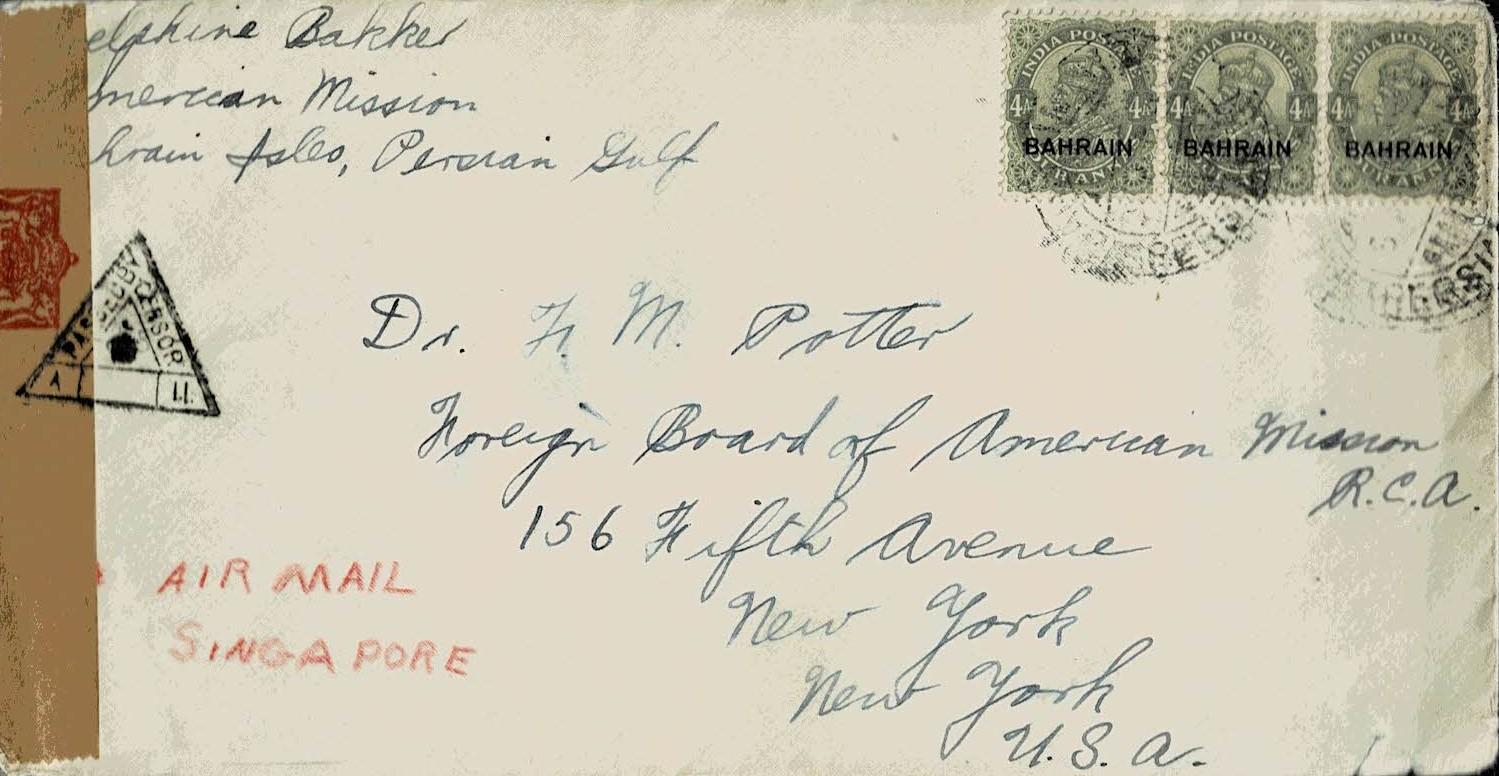 elphine Bakker
American Mission
hrain Isles, Persian Gulf
INDIA POSTAGE
4A 4A
BAHRAIN
INDIA POSTAGE
4A 4A
BAHRAIN
INDIA POSTAGE
4A 4A
BAHRAIN
PASSED BY CENSOR
A 11.
Dr. F. M. Potter
Foreign Board of American Mission
R.C.A.
156 Fifth Avenue
New York
New York
U.S.A.
AIR MAIL
SINGAPORE